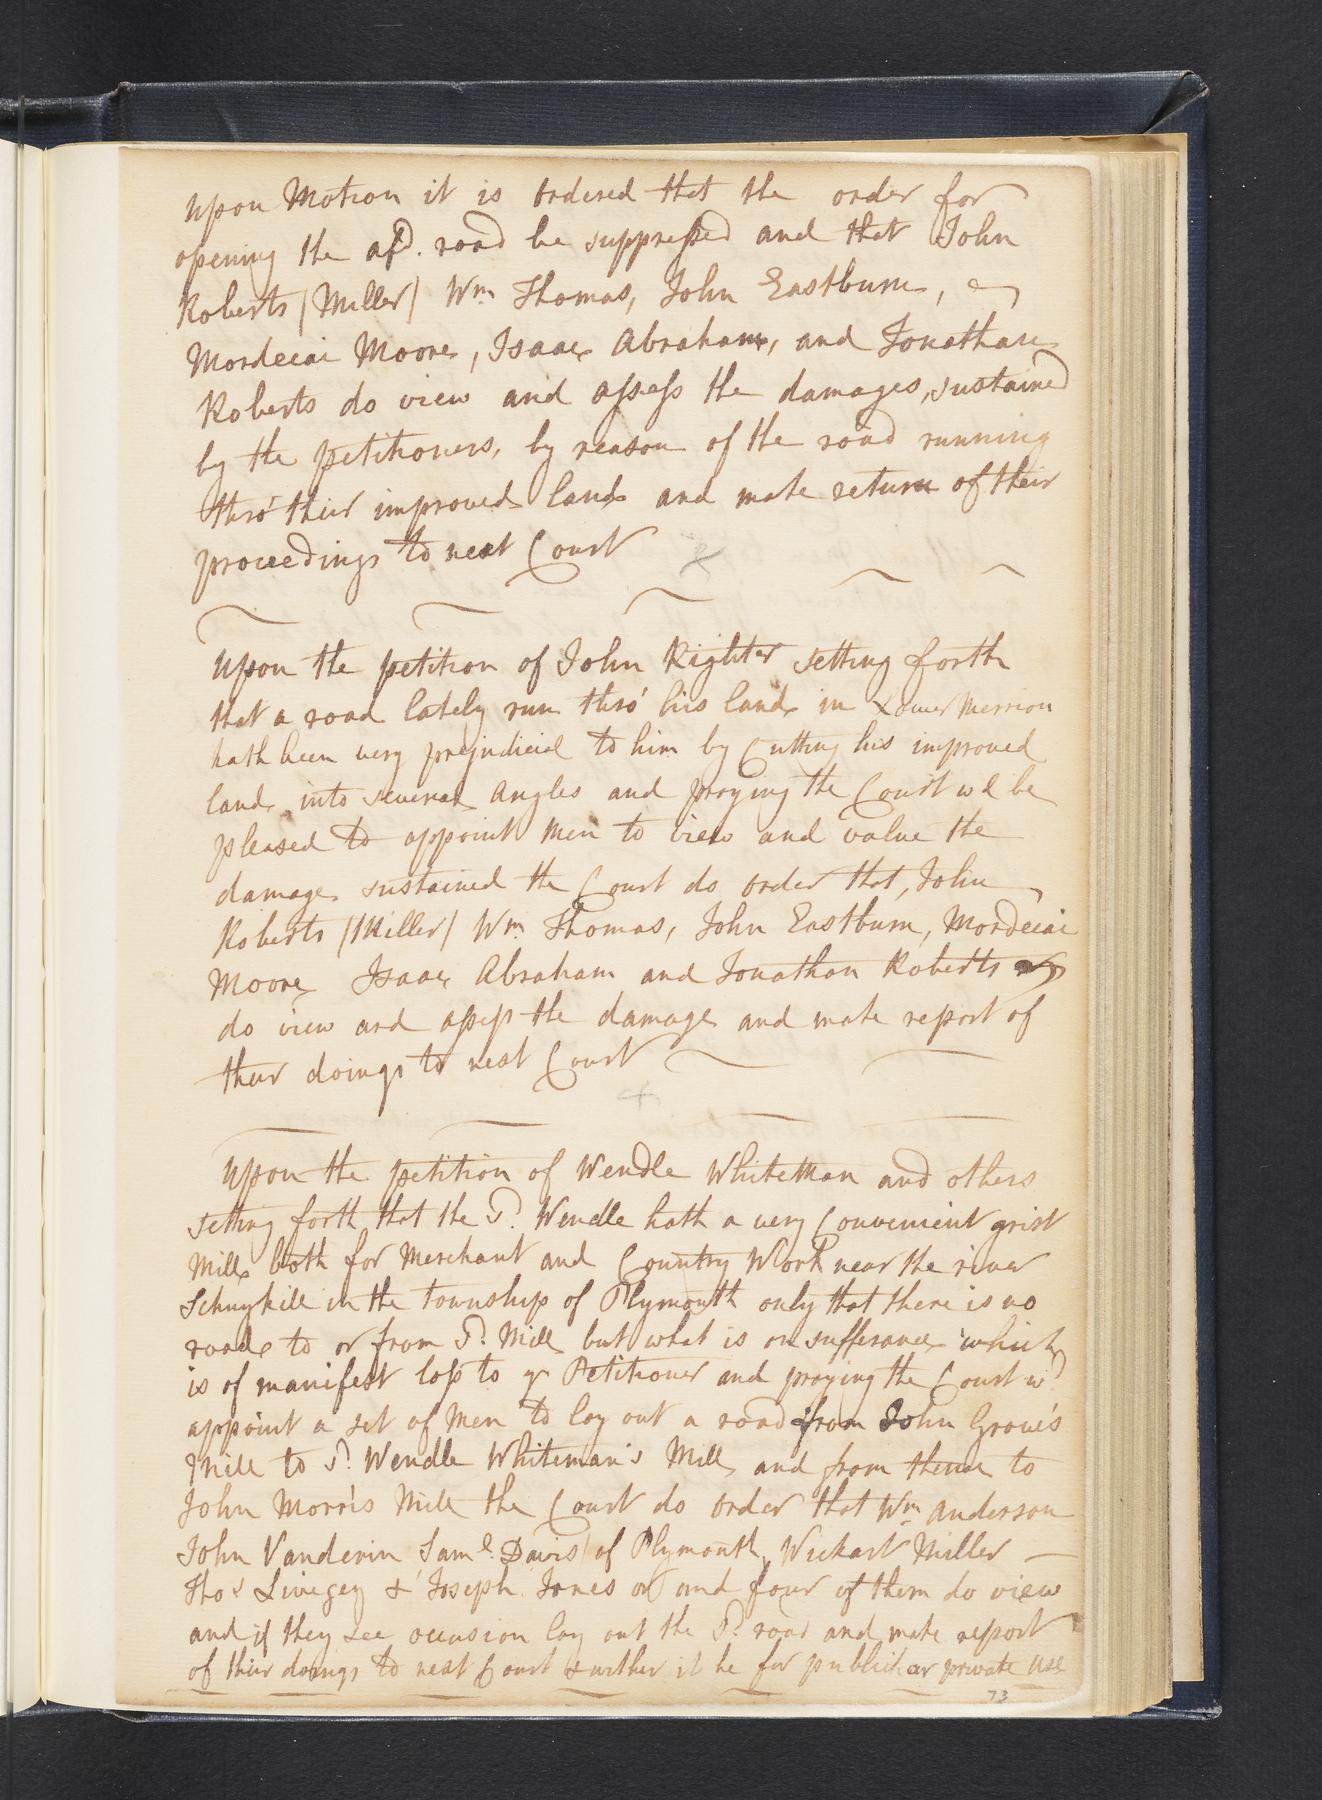 Upon Motion it is ordered that the order for
opening the afd. road be suppressed and that John
Roberts (Miller) Wm Thomas, John Eastburn,
Mordecai Moore, Isaac Abraham, and Jonathan
Roberts do view and assess the damages, sustained
by the petitioners, by reason of the road running
thro' their improved land and make return of their
proceedings to next Court
Upon the petition of John Righter setting forth
that a road lately run thro' his land in Lower Merrion
hath been very prejudicial to him by Cutting his improved
land into several Angles and praying the Court wd be
pleased to appoint Men to view and value the
damage sustained the Court do order that, John
Roberts (Miller) Wm Thomas, John Eastburn, Mordecai
Moore Isaac Abraham and Jonathan Roberts
do view and assess the damage and make report of
their doings to next Court
Upon the petition of Wendle Whiteman and others
setting forth that the Sd. Wendle hath a very Convenient grist
Mill both for Merchant and Country Work near the river
Schuylkill in the township of Plymouth only that there is no
road to or from Sd. Mill but what is on sufferance which
is of manifest loss to yr Petitioner and praying the Court wd
appoint a set of Men to lay out a road from John Grove's
Mill to Sd. Wendle Whiteman's Mill and from thence to
John Morris Mill the Court do order that Wm Anderson
John Vanderin Saml. Davis of Plymouth, Wickart Miller
Thos Livezey & Joseph Jones or and four of them do view
and if they see occasion lay out the Sd. road and make report
of their doings to next Court & wither it be for publick or private use
73